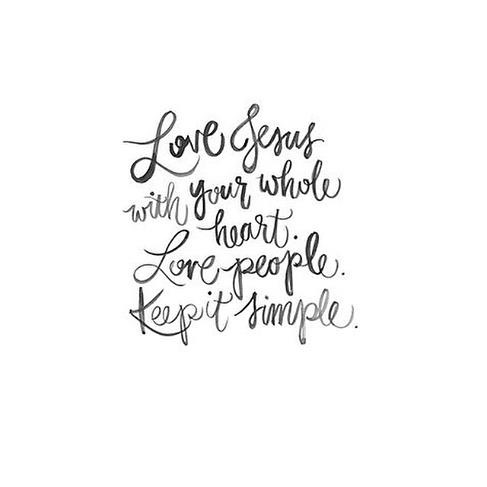 Love Jesus
with your whole
heart.
Love people.
Keep it simple.